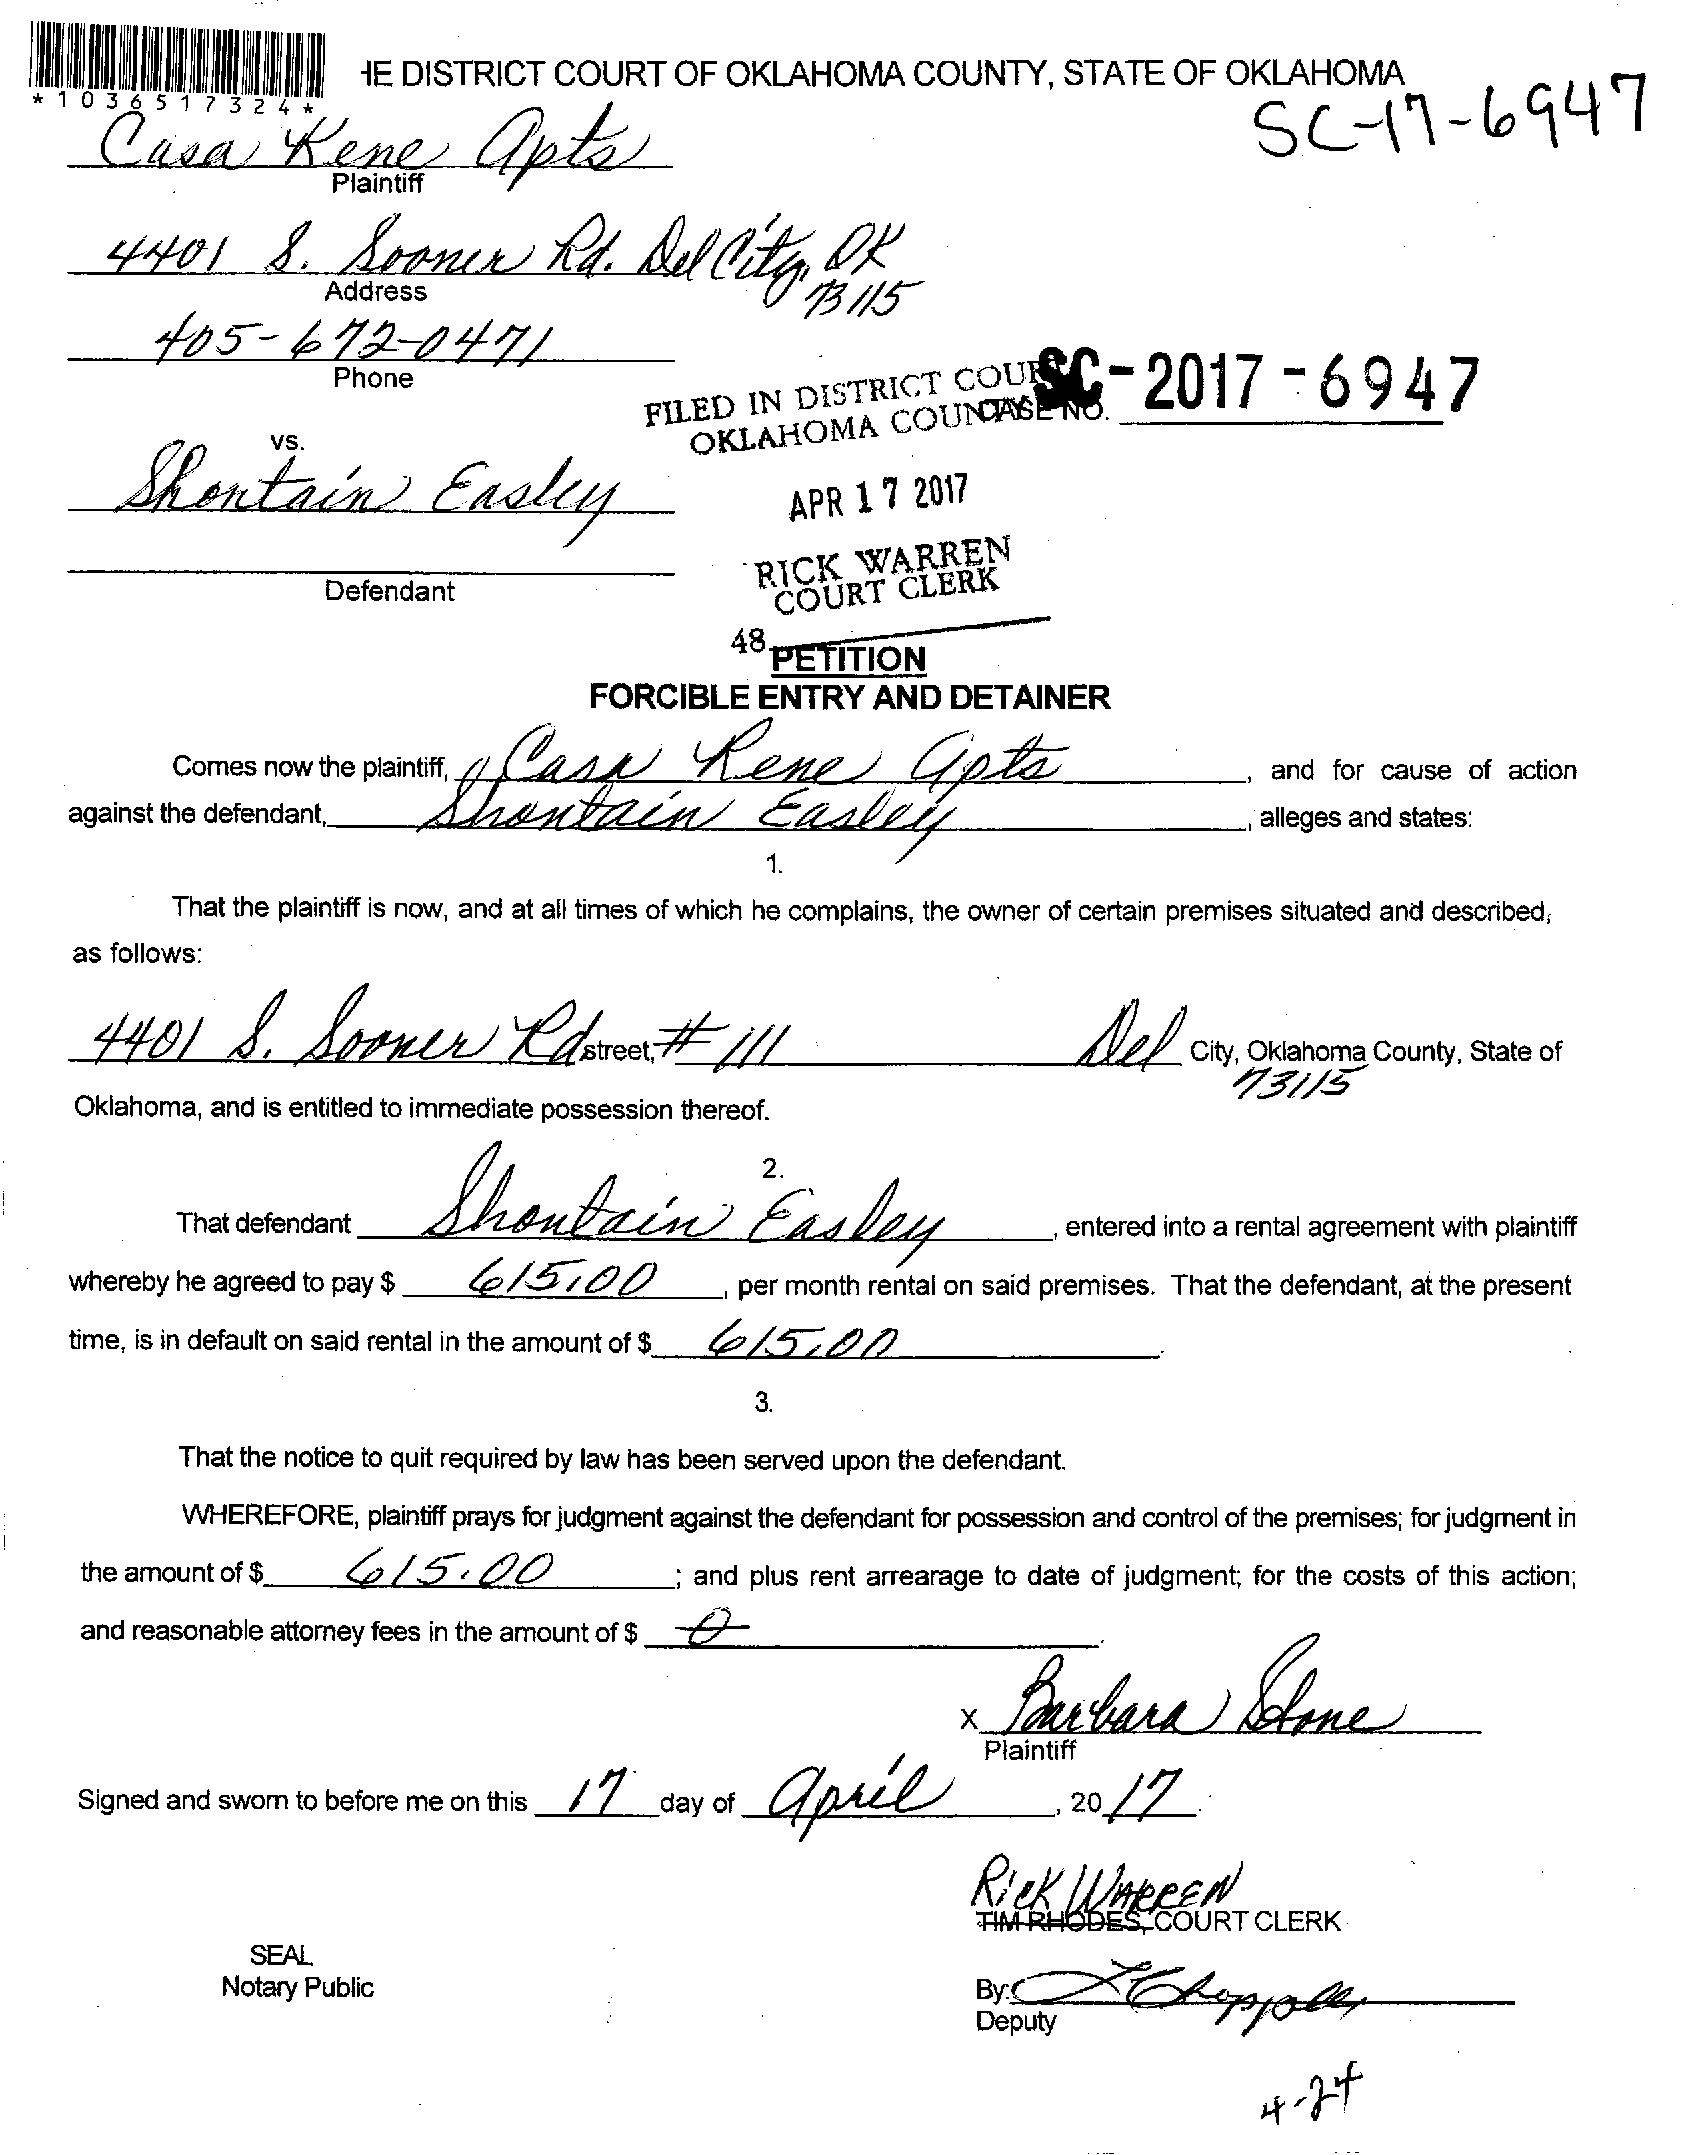 HE DISTRICT COURT OF OKLAHOMA COUNTY, STATE OF OKLAHOMA
*1036517324*
SC-17-6947
Casa Rene Apts
Plaintiff
4401 S. Sooner Rd. Del City, OK
73115
Address
405-672-0471
Phone
FILED IN DISTRICT COURT
OKLAHOMA COUNTY
CASE NO. SC-2017-6947
vs.
Shontain Easley
APR 17 2017
Defendant
RICK WARREN
COURT CLERK
48
PETITION
FORCIBLE ENTRY AND DETAINER
Comes now the plaintiff, Casa Rene Apts, and for cause of action
against the defendant, Shontain Easley, alleges and states:
1.
That the plaintiff is now, and at all times of which he complains, the owner of certain premises situated and described,
as follows:
4401 S. Sooner Rd street, # 111 Del City, Oklahoma County, State of
73115
Oklahoma, and is entitled to immediate possession thereof.
2.
That defendant Shontain Easley, entered into a rental agreement with plaintiff
whereby he agreed to pay $ 615.00, per month rental on said premises. That the defendant, at the present
time, is in default on said rental in the amount of $ 615.00.
3.
That the notice to quit required by law has been served upon the defendant.
WHEREFORE, plaintiff prays for judgment against the defendant for possession and control of the premises; for judgment in
the amount of $ 615.00; and plus rent arrearage to date of judgment; for the costs of this action;
and reasonable attorney fees in the amount of $ 0.
x Barbara Stone
Plaintiff
Signed and sworn to before me on this 17 day of April, 2017.
Rick Warren
TIM RHODES, COURT CLERK
SEAL
Notary Public
By:
Deputy
4-24